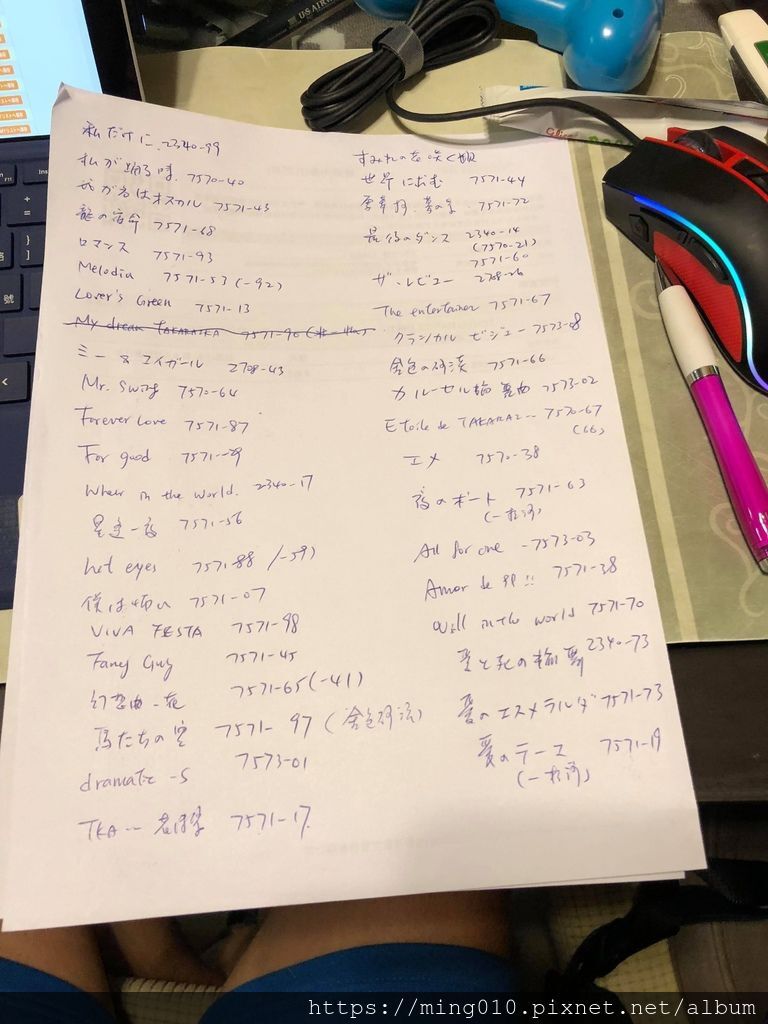 私だけに 2340-99
私が踊る時 7570-40
我が名はオスカル 7571-43
龍の宿命 7571-68
ロマンス 7571-93
Melodia 7571-53 (-92)
Lover's Green 7571-13
My dream TAKARAZUKA 7571-90
ミー&マイガール 2708-43
Mr. Swing 7570-64
Forever Love 7571-87
For good 7571-
Where in the world. 2340-17
星逢一夜 7571-56
hot eyes 7571-88 /-59)
僕は怖い 7571-07
VIVA FESTA 7571-98
Fancy Guy 7571-45
幻想曲-花 7571-65 (-41)
馬たちの 7571-97 (金色砂漠)
dramatic -S 7573-01
TKA 7571-17
すみれの花咲く頃
世界に求む 7571-44
7571-72
最後のダンス 2340-14
(7570-21)
7571-60
ザ・レビュー 2708-26
The entertainer 7571-67
クラシカル ビジュー 7573-
金色の砂漠 7571-66
カルーセル輪舞曲 7573-02
Etoile de TAKARAZ-- 7570-67
(66)
エメ 7570-38
夜のボート 7571-63
All for one -7573-03
Amor de 99!! 7571-38
Will in the world 7571-70
愛と死の輪舞 2340-73
愛のエスメラルダ 7571-73
愛のテーマ 7571-19
US AIR
https://ming010.pixnet.net/album